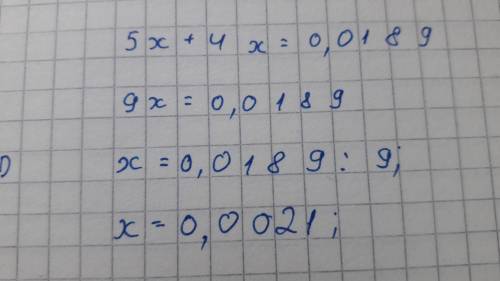 5x + 4x = 0,0189
9x = 0,0189
x = 0,0189 : 9;
x = 0,0021;